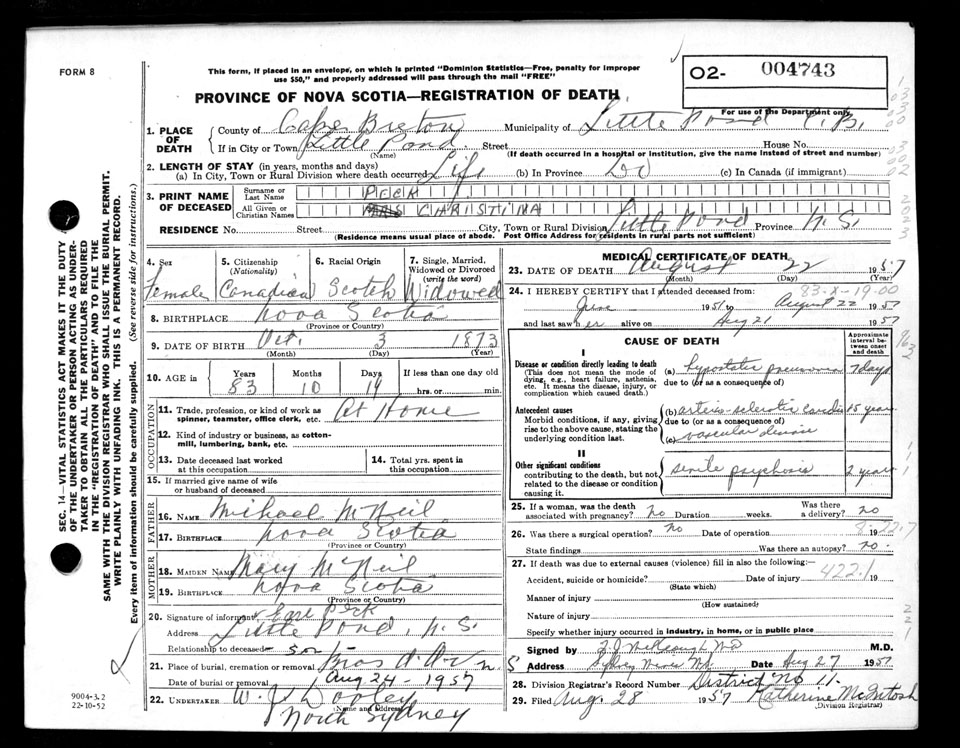 FORM 8
This form, if placed in an envelope, on which is printed "Dominion Statistics—Free, penalty for improper
use $50," and properly addressed will pass through the mail "FREE"
PROVINCE OF NOVA SCOTIA—REGISTRATION OF DEATH
O2- 004743
For use of the Department only.
1. PLACE OF DEATH
County of Cape Breton Municipality of Little Pond C.B.
If in City or Town Little Pond Street House No.
(Name) (If death occurred in a hospital or institution, give the name instead of street and number)
2. LENGTH OF STAY (in years, months and days)
(a) In City, Town or Rural Division where death occurred Life (b) In Province Do (c) In Canada (if immigrant)
3. PRINT NAME OF DECEASED
Surname or Last Name PECK
All Given or Christian Names MRS CHRISTINA
RESIDENCE No. Street City, Town or Rural Division Little Pond Province N.S.
(Residence means usual place of abode. Post Office Address for residents in rural parts not sufficient)
4. Sex Female
5. Citizenship (Nationality) Canadian
6. Racial Origin Scotch
7. Single, Married, Widowed or Divorced (write the word) Widowed
8. BIRTHPLACE Nova Scotia
(Province or Country)
9. DATE OF BIRTH Oct. 3 1873
(Month) (Day) (Year)
10. AGE in Years Months Days If less than one day old
83 10 19 hrs. or min.
OCCUPATION
11. Trade, profession, or kind of work as spinner, teamster, office clerk, etc. At Home
12. Kind of industry or business, as cotton-mill, lumbering, bank, etc.
13. Date deceased last worked at this occupation
14. Total yrs. spent in this occupation
15. If married give name of wife or husband of deceased
FATHER
16. NAME Michael McNeil
17. BIRTHPLACE Nova Scotia
(Province or Country)
MOTHER
18. MAIDEN NAME Mary McNeil
19. BIRTHPLACE Nova Scotia
(Province or Country)
20. Signature of informant x Earl Peck
Address Little Pond, N.S.
Relationship to deceased - son -
21. Place of burial, cremation or removal Bras d'Or N.S
Date of burial or removal Aug 24 - 1957
22. UNDERTAKER W. J. Dooley
(Name and Address)
North Sydney
MEDICAL CERTIFICATE OF DEATH
23. DATE OF DEATH August 22 1957
(Month) (Day) (Year)
24. I HEREBY CERTIFY that I attended deceased from: 83-X-19-00
June 1951 to August 22 1957
and last saw her alive on Aug 21 1957
CAUSE OF DEATH
Approximate interval between onset and death
I
Disease or condition directly leading to death
(This does not mean the mode of dying, e.g., heart failure, asthenia, etc. It means the disease, injury, or complication which caused death.)
(a) Hypostatic pneumonia 7 days
due to (or as a consequence of)
Antecedent causes
Morbid conditions, if any, giving rise to the above cause, stating the underlying condition last.
(b) arterio-sclerotic cardio 15 year
due to (or as a consequence of)
(c) vascular disease
II
Other significant conditions
contributing to the death, but not related to the disease or condition causing it.
senile psychosis 2 years
25. If a woman, was the death associated with pregnancy? no Duration weeks. Was there a delivery? no
26. Was there a surgical operation? no Date of operation 19
State findings Was there an autopsy? no.
27. If death was due to external causes (violence) fill in also the following:—
Accident, suicide or homicide? Date of injury 19
422.1
(State which)
Manner of injury
(How sustained)
Nature of injury
Specify whether injury occurred in industry, in home, or in public place
Signed by M.D.
Address Sydney Mines NS Date Aug 27 1957
28. Division Registrar's Record Number District No 11.
29. Filed Aug. 28 1957 Katherine McIntosh
(Division Registrar)
SEC. 14—VITAL STATISTICS ACT MAKES IT THE DUTY
OF THE UNDERTAKER OR PERSON ACTING AS UNDER-
TAKER TO OBTAIN ALL THE PARTICULARS REQUIRED
IN THE "REGISTRATION OF DEATH" AND TO FILE THE
SAME WITH THE DIVISION REGISTRAR WHO SHALL ISSUE THE BURIAL PERMIT.
WRITE PLAINLY WITH UNFADING INK. THIS IS A PERMANENT RECORD.
Every item of information should be carefully supplied. (See reverse side for instructions.)
9004-3.2
22-10-52